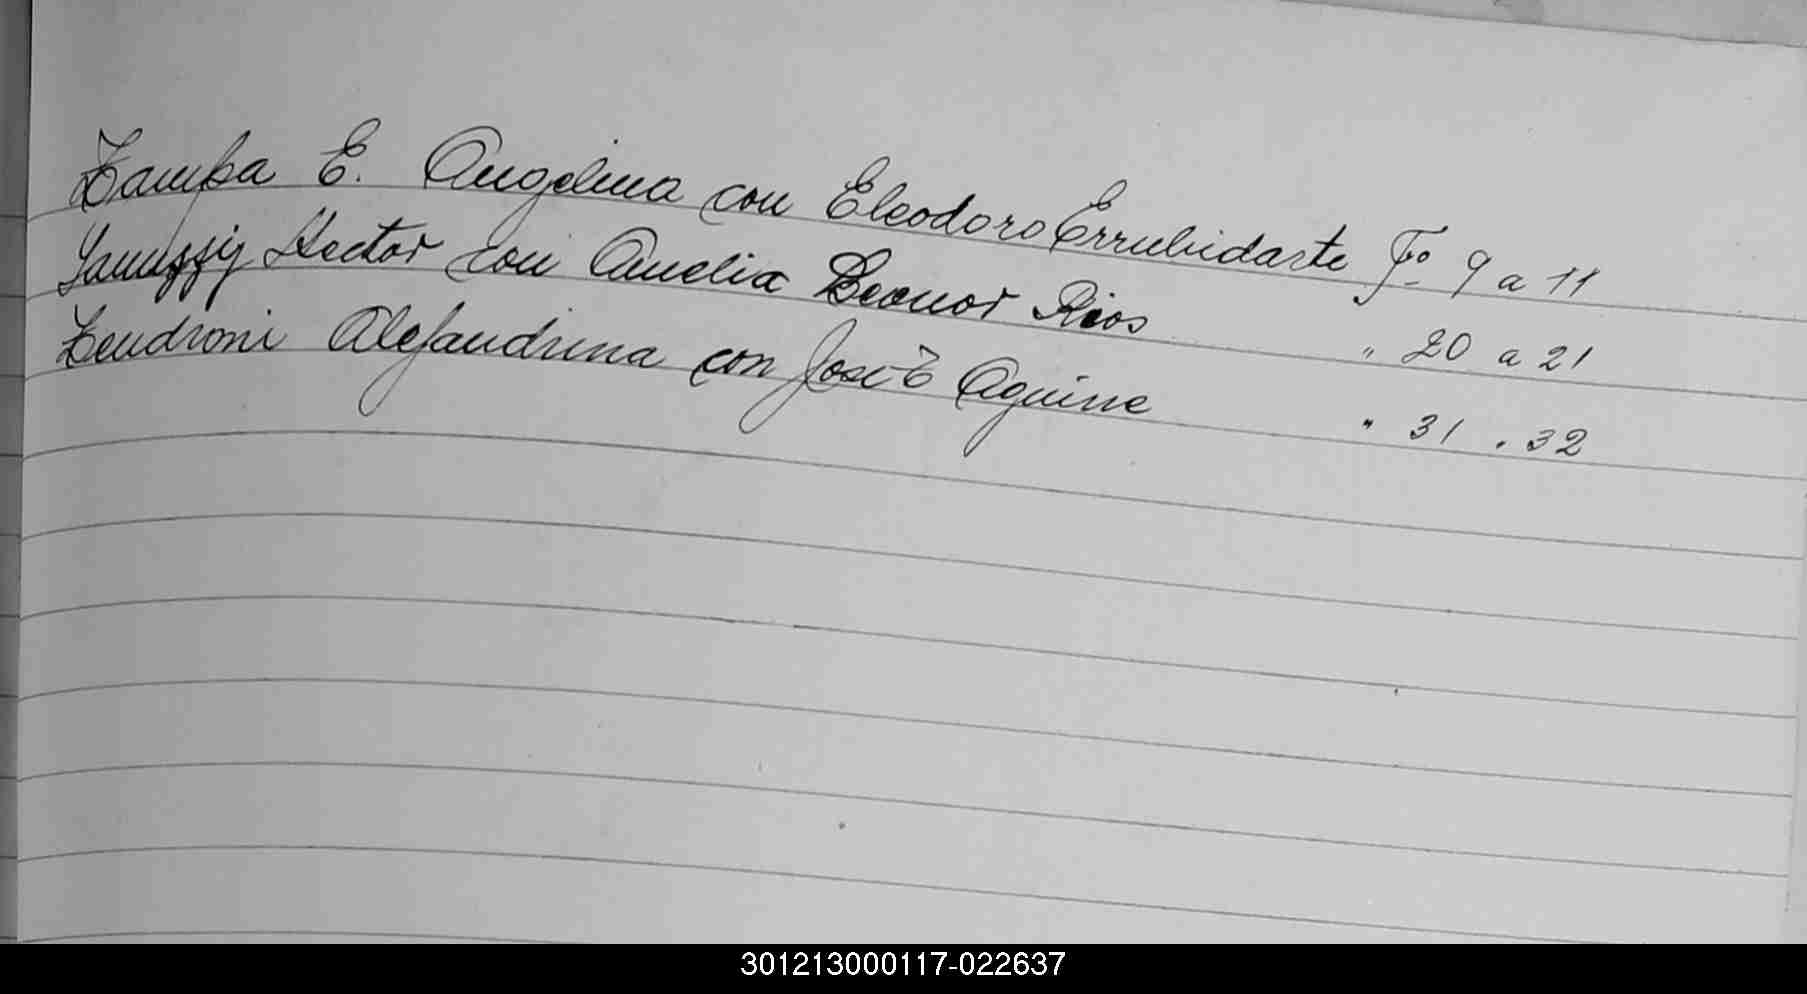 Zampa E. Angelina con Eleodoro Errubidarte Fº 9 a 11
Hector con Amelia Leonor Rios " 20 a 21
Zendroni Alejandrina con José E Aguirre " 31 " 32
301213000117-022637